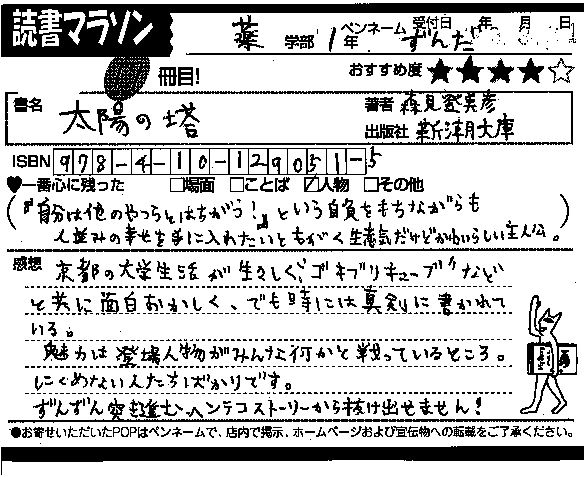 読書マラソン
薬 学部 1年 ペンネーム ずんだ 受付日 年 月 日
冊目! おすすめ度 ★★★★☆
書名 太陽の塔
著者 森見登美彦
出版社 新潮文庫
ISBN 978-4-10-129051-5
♥一番心に残った □場面 □ことば ☑人物 □その他
(『自分は他のやつらとはちがう!』という自負をもちながらも
人並みの幸せを手に入れたいともがく生意気だけどかわいらしい主人公。)
感想 京都の大学生活が生々しく、"ゴキブリキューブ"など
と共に面白おかしく、でも時には真剣に書かれて
いる。
魅力は登場人物がみんな何かと戦っているところ。
にくめない人たちばかりです。
ずんずん突き進むヘンテコストーリーから抜け出せません!
●お寄せいただいたPOPはペンネームで、店内で掲示、ホームページおよび宣伝物への転載をご了承ください。